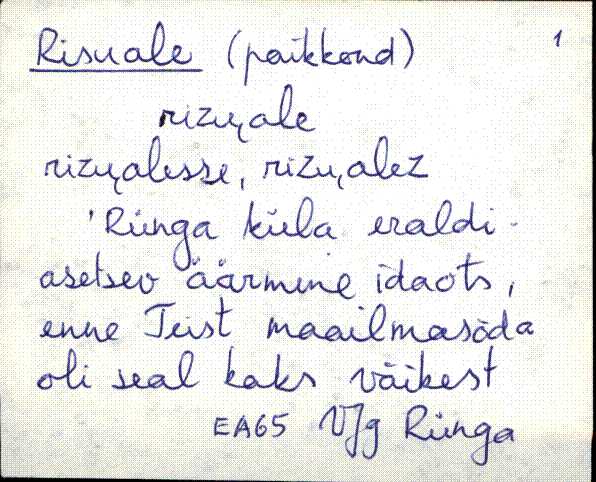 Risuale (paikkond) 1
rizu̯ale
rizu̯alesse, rizu̯alez
'Rünga küla eraldi-
asetsev äärmine idaots,
enne Teist maailmasõda
oli seal kaks väikest
EA65 VJg Rünga